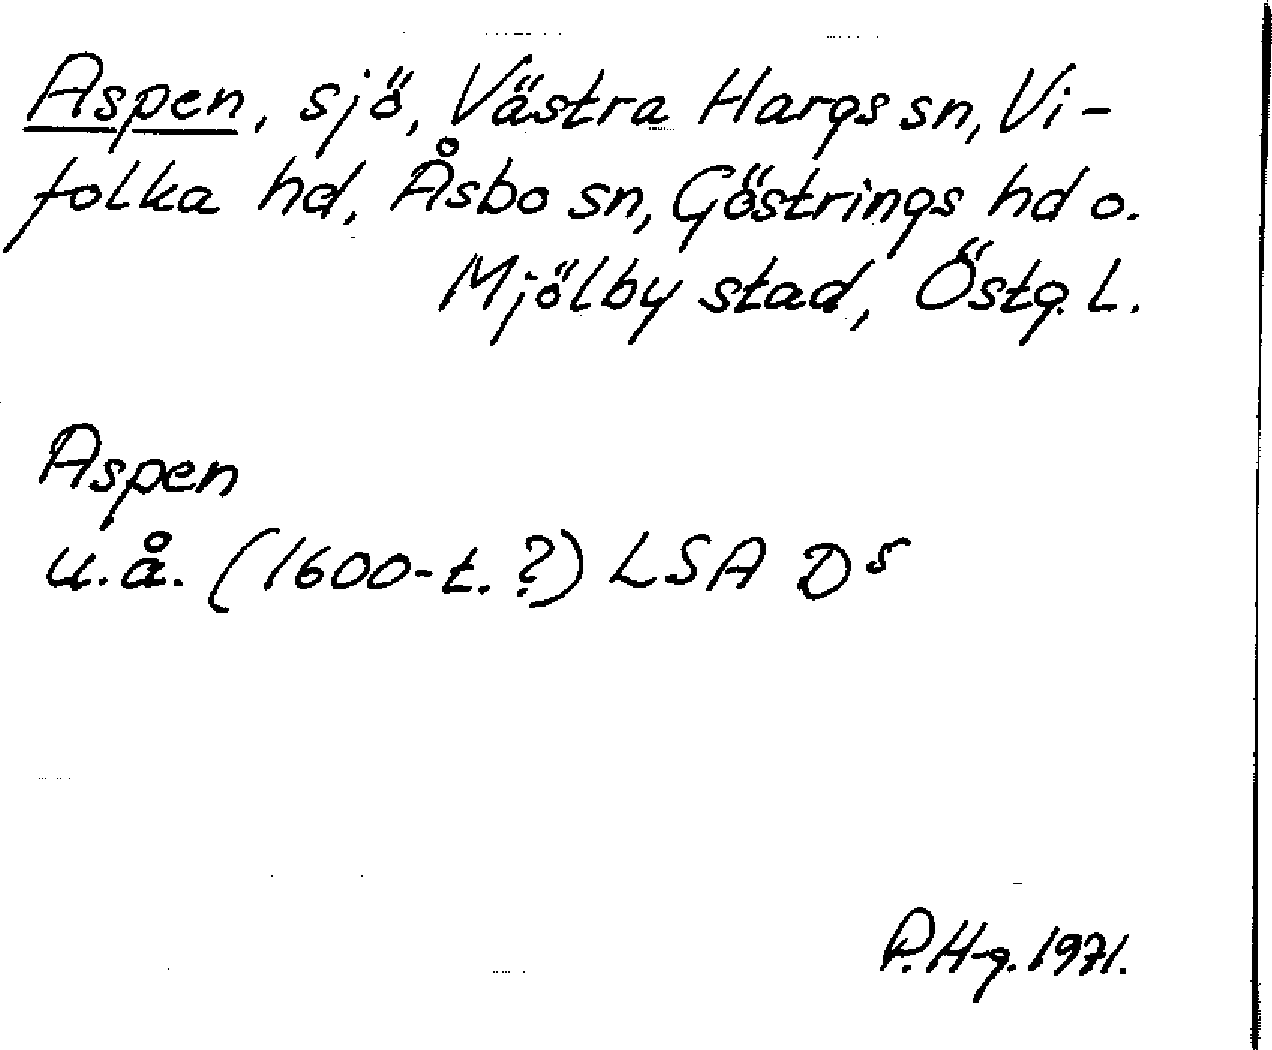 Aspen, sjö, Västra Hargs sn, Vi-
folka hd, Åsbo sn, Göstrings hd o.
Mjölby stad, Östg. L.
Aspen
u.å. (1600-t. ?) LSA D s
P. H-g. 1971.